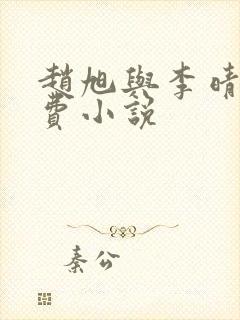 趙旭與李晴
費小說
秦公